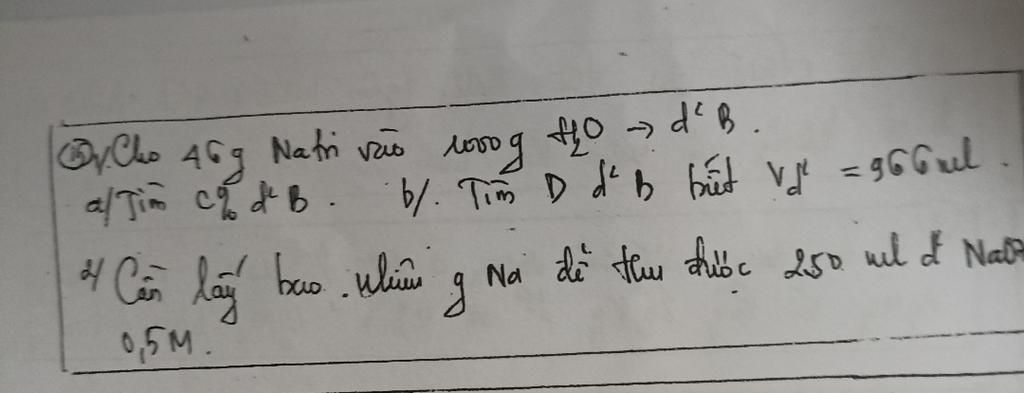 ⑤ 1/. Cho 46g Natri vào 1000g H₂O → d² B.
a/ Tìm C% d² B. b/. Tìm D d² B biết Vd² = 966 ml.
2/ Cần lấy bao nhiêu g Na để thu được 250 ml d² NaOH
0,5M.